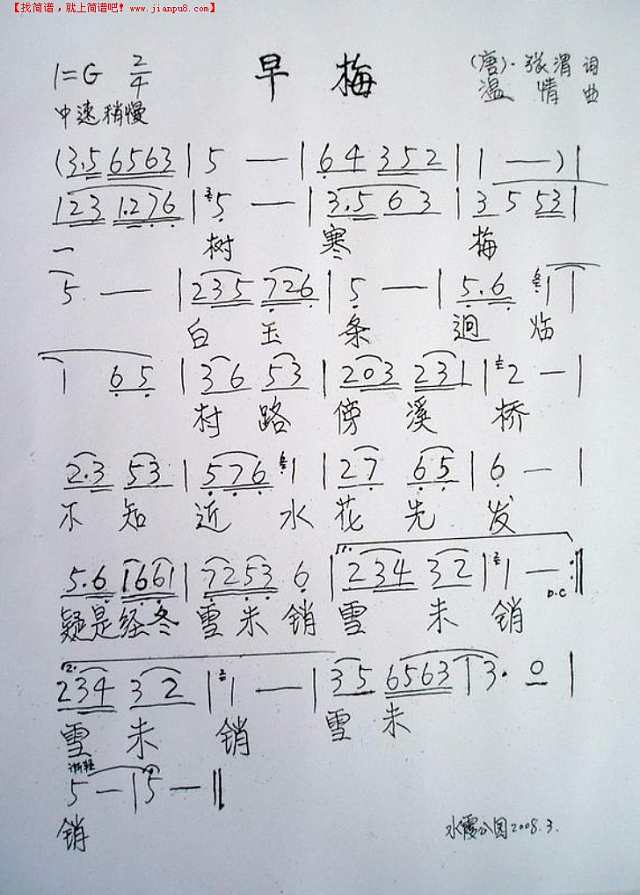 【找简谱，就上简谱吧！www.jianpu8.com】
1=G 2/4 早梅 (唐)·张渭 词
中速稍慢 温情 曲
(3.5 6563 | 5 — | 64 352 | 1 — ) |
123 1.276 | 5 — | 3.5 63 | 3 5 53 |
一 树 寒 梅
5 — | 235 726 | 5 — | 5.6 1 |
白玉条 迴临
1 65 | 36 53 | 203 231 | 2 — |
村路傍溪桥
2.3 53 | 576 1 | 27 65 | 6 — |
不知近水花先发
5.6 1661 | 7253 6 | 1. 234 32 | 1 — :||
D.C
疑是经冬雪未销雪未销
2. 234 32 | 1 — | 35 6563 | 3. 0 |
雪未销 雪未
渐轻
5 — | 5 — ||
销
水霞公园2008.3.